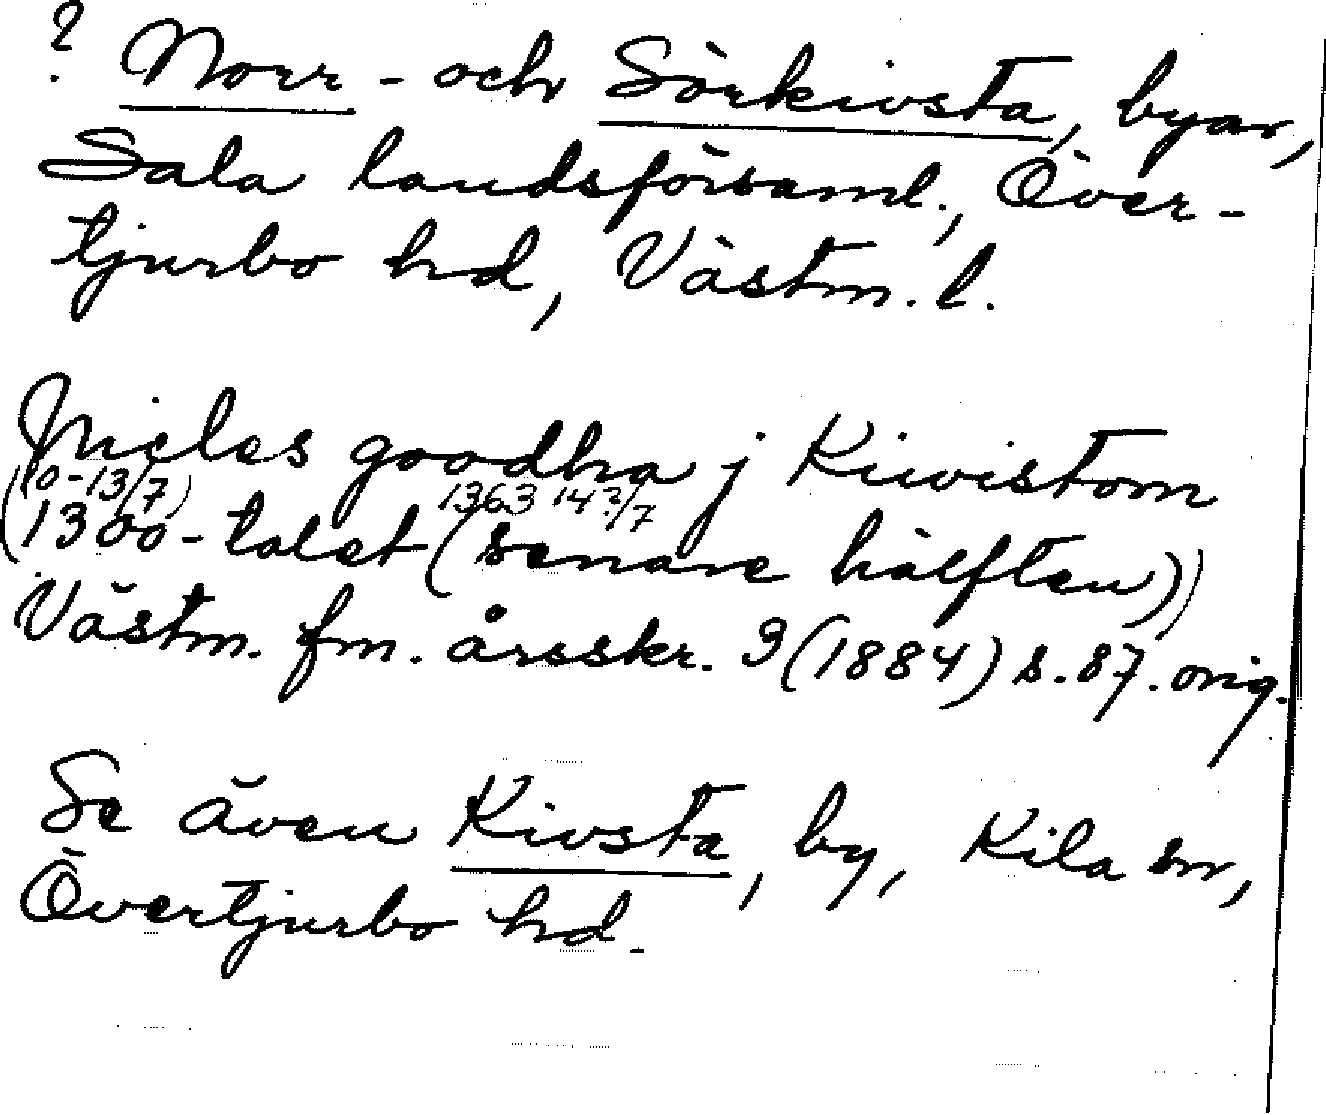 ? Norr- och Sörkivsta, byar,
Sala landsförsaml., Över-
tjurbo hd, Västm. l.
Nicles goodha j Kiwistom
(10-13/7) 1363 14 /7
(1300-talet (senare hälften))
Västm. fm. årsskr. 3 (1884) s. 87. orig.
Se även Kivsta, by, Kila sn,
Övertjurbo hd.